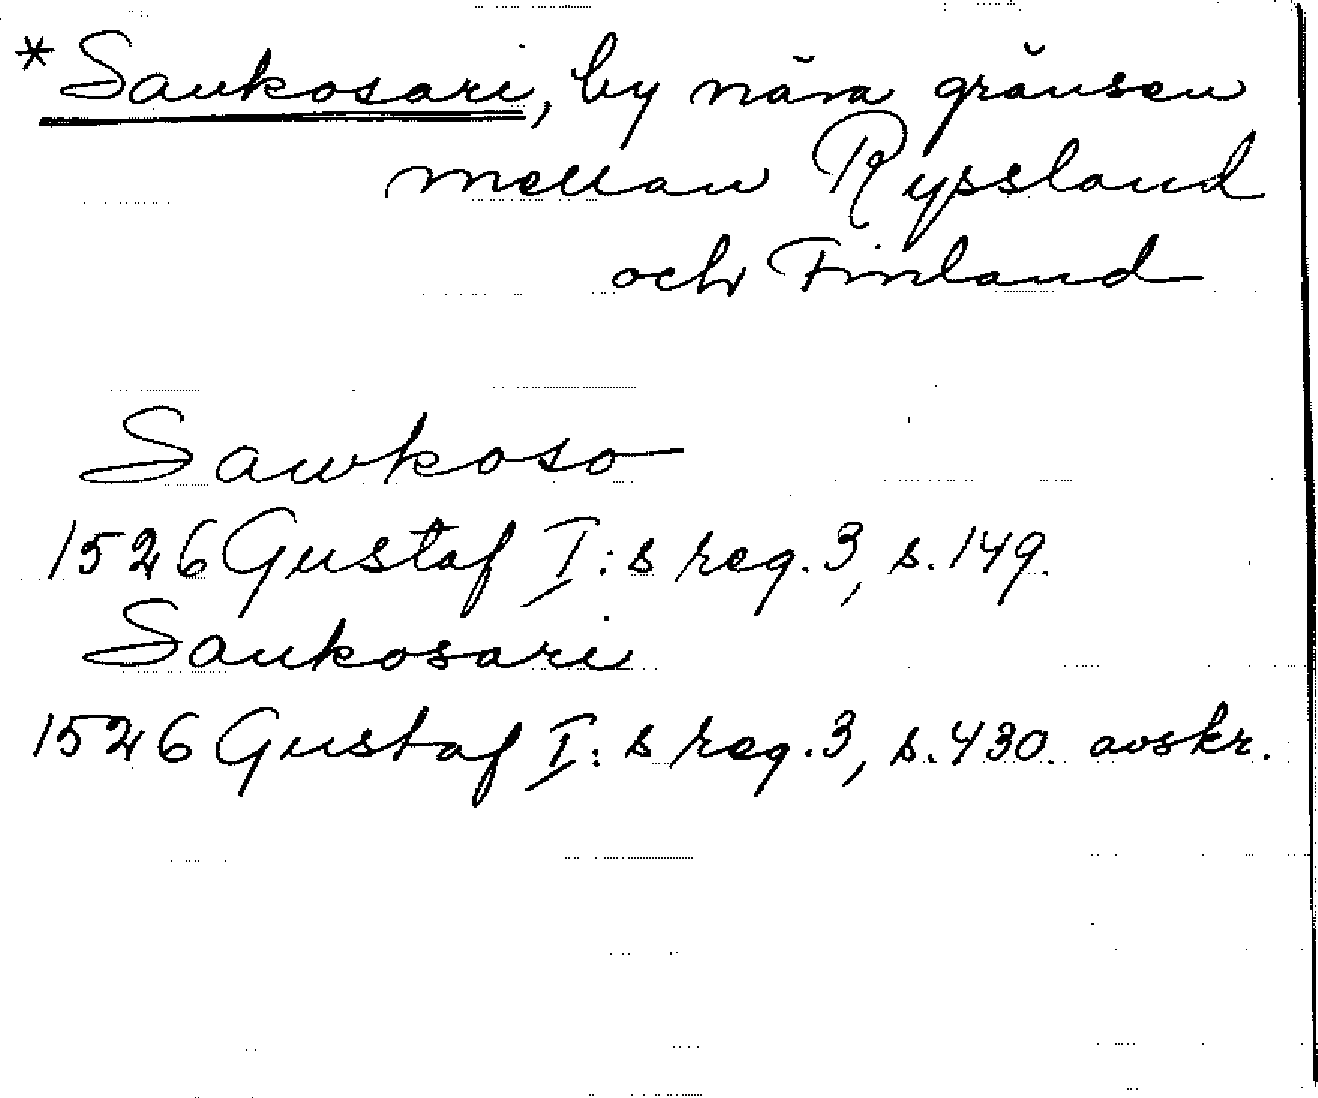 *Saukosari, by nära gränsen
mellan Ryssland
och Finland
Sawkoso
1526 Gustaf I:s reg. 3, s. 149.
Saukosari
1526 Gustaf I:s reg. 3, s. 430. avskr.